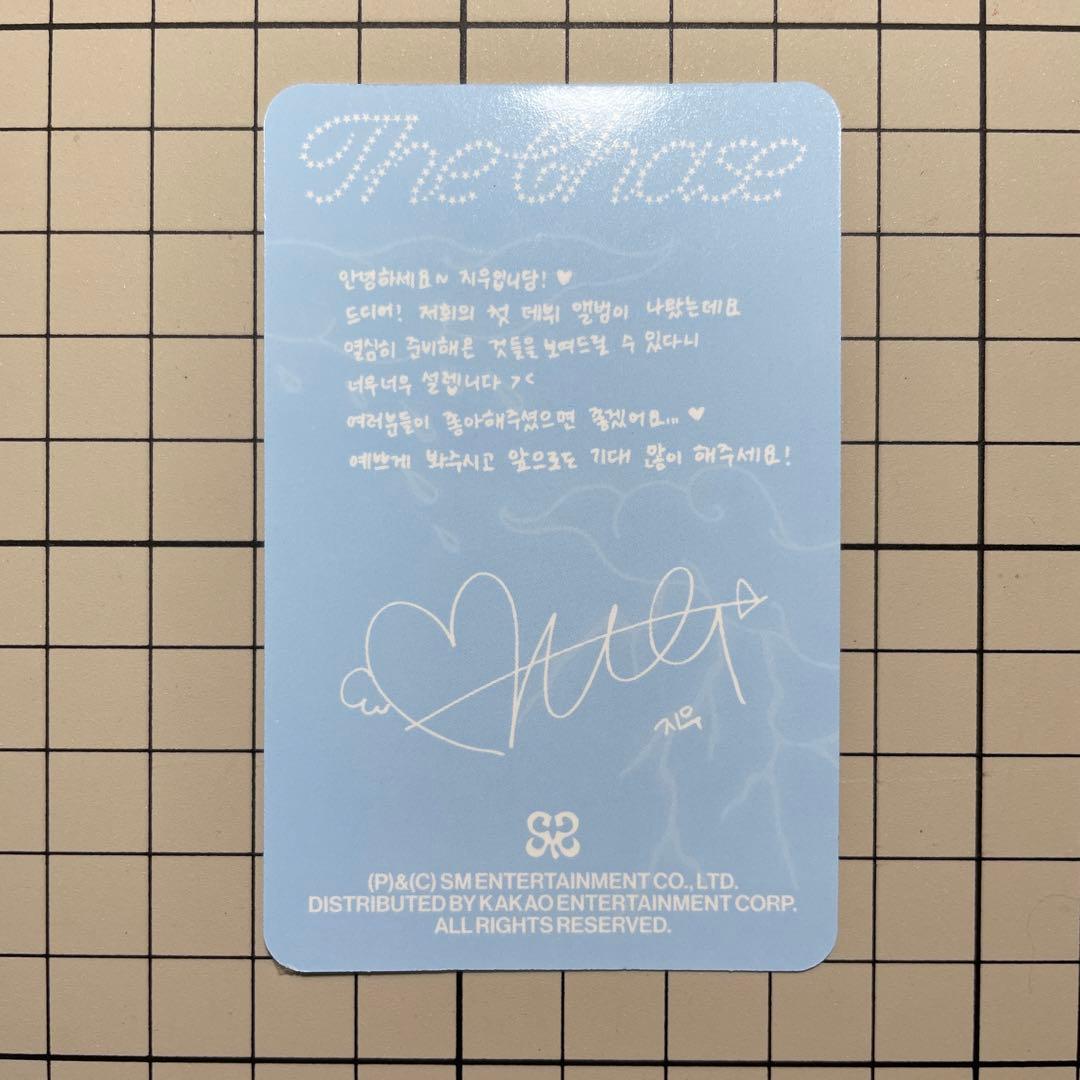 The Chase
안녕하세요~ 지우입니담! ♥
드디어! 저희의 첫 데뷔 앨범이 나왔는데요
열심히 준비해온 것들을 보여드릴 수 있다니
너무너무 설렙니다 ><
여러분들이 좋아해주셨으면 좋겠어요... ♥
예쁘게 봐주시고 앞으로도 기대 많이 해주세요!
지우
(P)&(C) SM ENTERTAINMENT CO., LTD.
DISTRIBUTED BY KAKAO ENTERTAINMENT CORP.
ALL RIGHTS RESERVED.